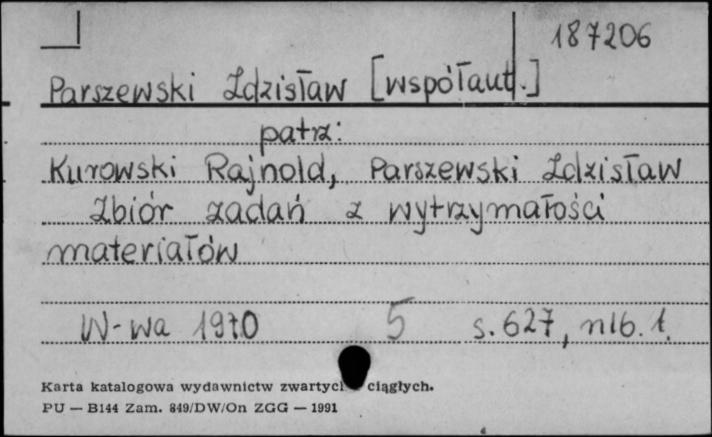 187206
Parszewski Zdzisław [współaut.]
patrz:
Kurowski Rajnold, Parszewski Zdzisław
Zbiór zadań z wytrzymałości
materiałów
W-wa 1970 5 s. 627, nlb. 1.
Karta katalogowa wydawnictw zwartych ciągłych.
PU — B144 Zam. 849/DW/On ZGG — 1991